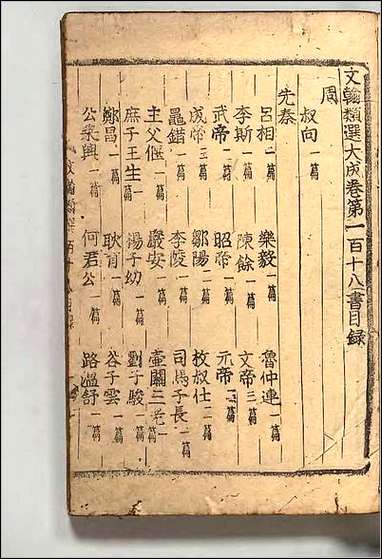 文翰類選大成卷第一百十八書目録
周
叔向一篇
先秦
呂相一篇 樂毅一篇 魯仲連一篇
李斯一篇 陳餘一篇 文帝三篇
武帝一篇 昭帝一篇 元帝一篇
成帝三篇 鄒陽二篇 枚叔仕二篇
鼂錯一篇 李陵一篇 司馬子長一篇
主父偃一篇 嚴安一篇 壷關三老一篇
庶子王生一篇 楊子幼一篇 劉子駿一篇
鄭昌一篇 耿育一篇 谷子雲一篇
公乘興一篇 何君公一篇 路溫舒一篇